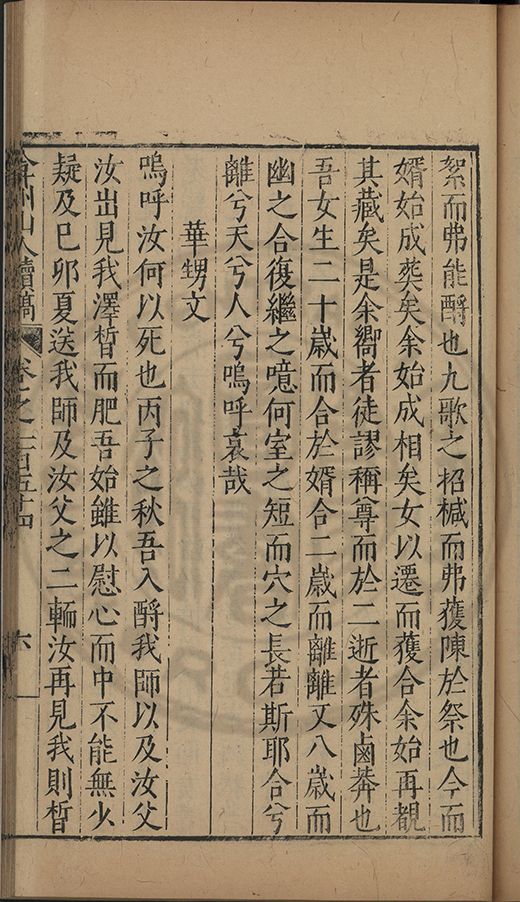 絮而弗能酹也九歌之招椷而弗獲陳於祭也今而
婿始成葬矣余始成相矣女以遷而獲合余始再覩
其藏矣是余嚮者徒謬稱尊而於二逝者殊鹵莽也
吾女生二十歲而合於婿合二歲而離離又八歲而
幽之合復繼之噫何室之短而穴之長若斯耶合兮
離兮天兮人兮嗚呼哀哉
華甥文
嗚呼汝何以死也丙子之秋吾入酹我師以及汝父
汝出見我澤晳而肥吾始雖以慰心而中不能無少
疑及巳卯夏送我師及汝父之二輀汝再見我則晳
弇州山人續稿
卷之一百五十四
六